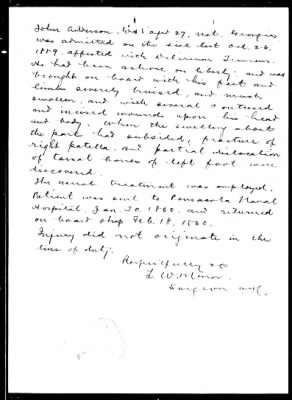 John Anderson, aged 27, nat. Georgia
was admitted on the sick list Oct. 26.
1859. affected with Delirium Tremens.
He had been ashore on liberty; and was
brought on board with his feet and
limbs severely bruised, and much
swollen, and with several contused
and incised wounds upon his head
and body. When the swelling about
the parts had subsided, fracture of
right patella, and partial dislocation
of tarsal bones of left foot were
discovered.
The usual treatment was employed.
Patient was sent to Pensacola Naval
Hospital, Jan. 30. 1860. and returned
on board ship Feb. 18. 1860.
Injury did not originate in the
line of duty.
Respectfully &c
L. W. Minor.
Surgeon